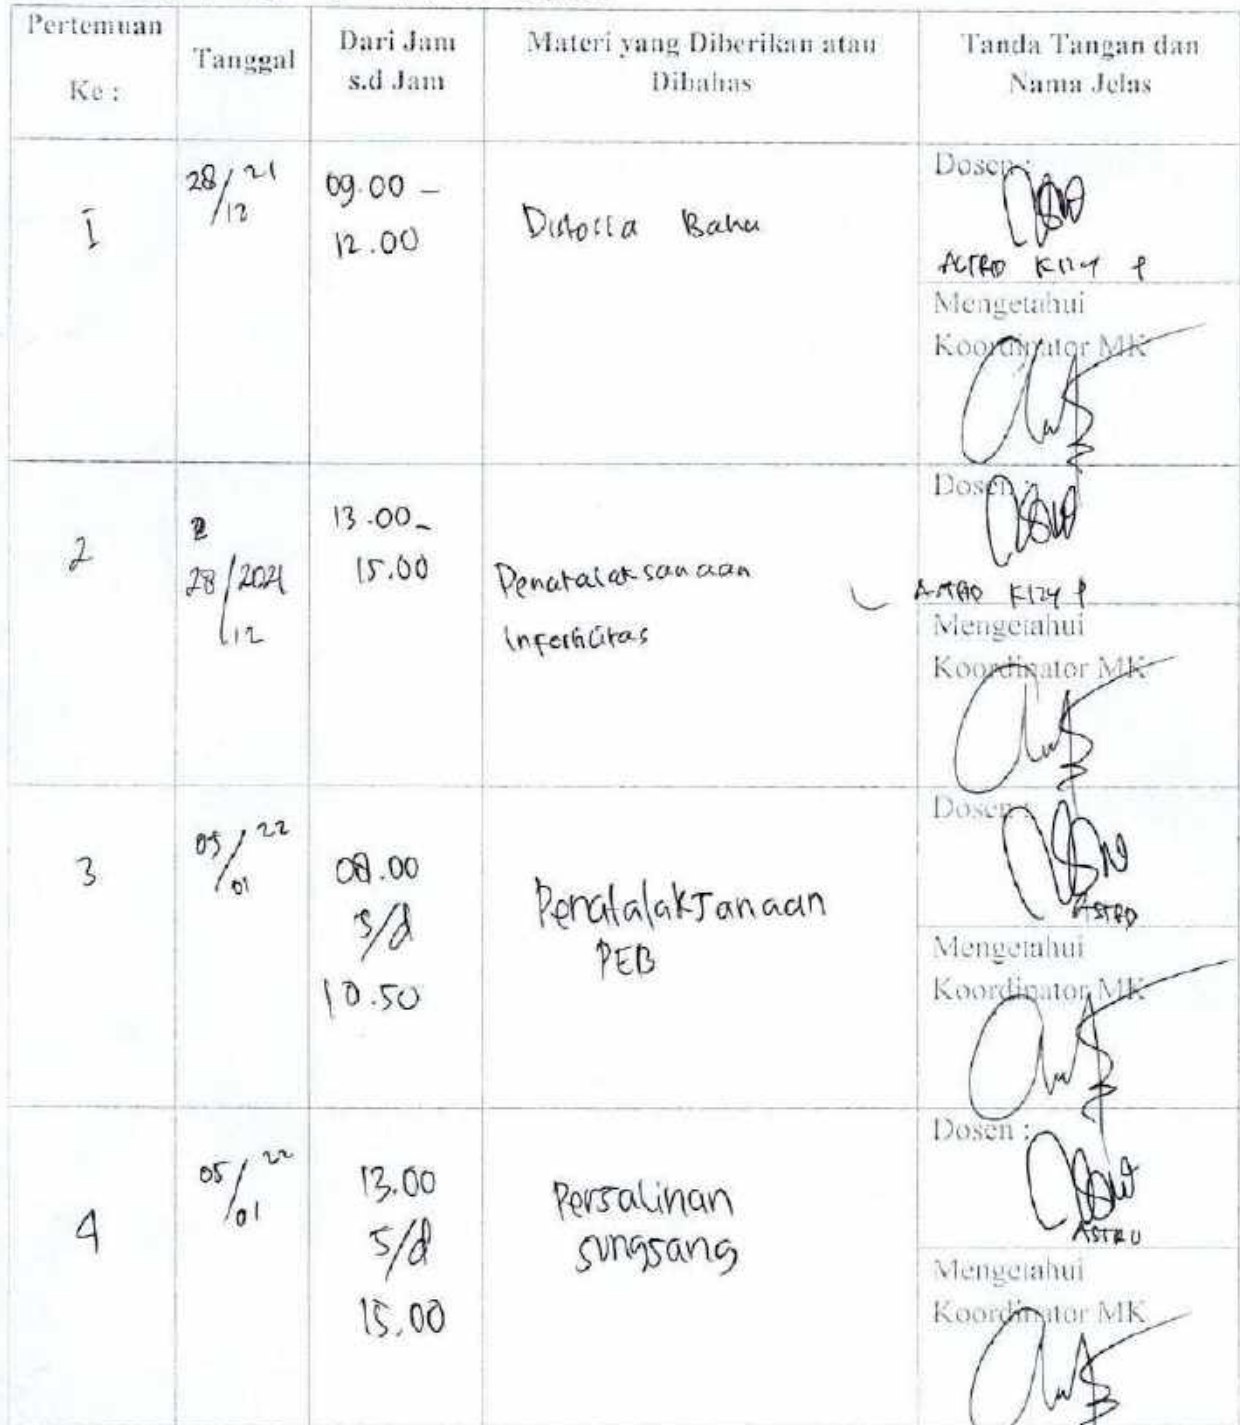 Pertemuan
Ke :
Tanggal
Dari Jam
s.d Jam
Materi yang Diberikan atau
Dibahas
Tanda Tangan dan
Nama Jelas
I
28/12 21
09.00 –
12.00
Distosia Bahu
Dosen :
ASTRO
Mengetahui
Koordinator MK
2
28/12 2021
13.00-
15.00
Penatalaksanaan
Infertilitas
Dosen :
ASTRO
Mengetahui
Koordinator MK
3
05/01 22
08.00
s/d
10.50
Penatalaksanaan
PEB
Dosen :
ASTRO
Mengetahui
Koordinator MK
4
05/01 22
13.00
s/d
15.00
Persalinan
sungsang
Dosen :
ASTRO
Mengetahui
Koordinator MK